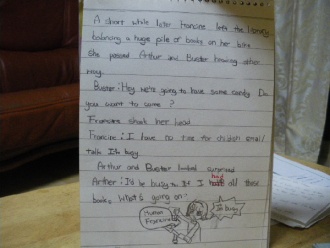 A short while later Francine left the library
balancing a huge pile of books on her bike
She passed Arthur and Buster heading other
way.
Buster: Hey we're going to have some candy. Do
you want to come ?
Francine shook her head
Francine: I have no time for childish small
talk I'm busy
Arthur and Buster looked surprised
Arthur: I'd be busy to If I had all these
books. What's going on
Human
Francine
I'm busy